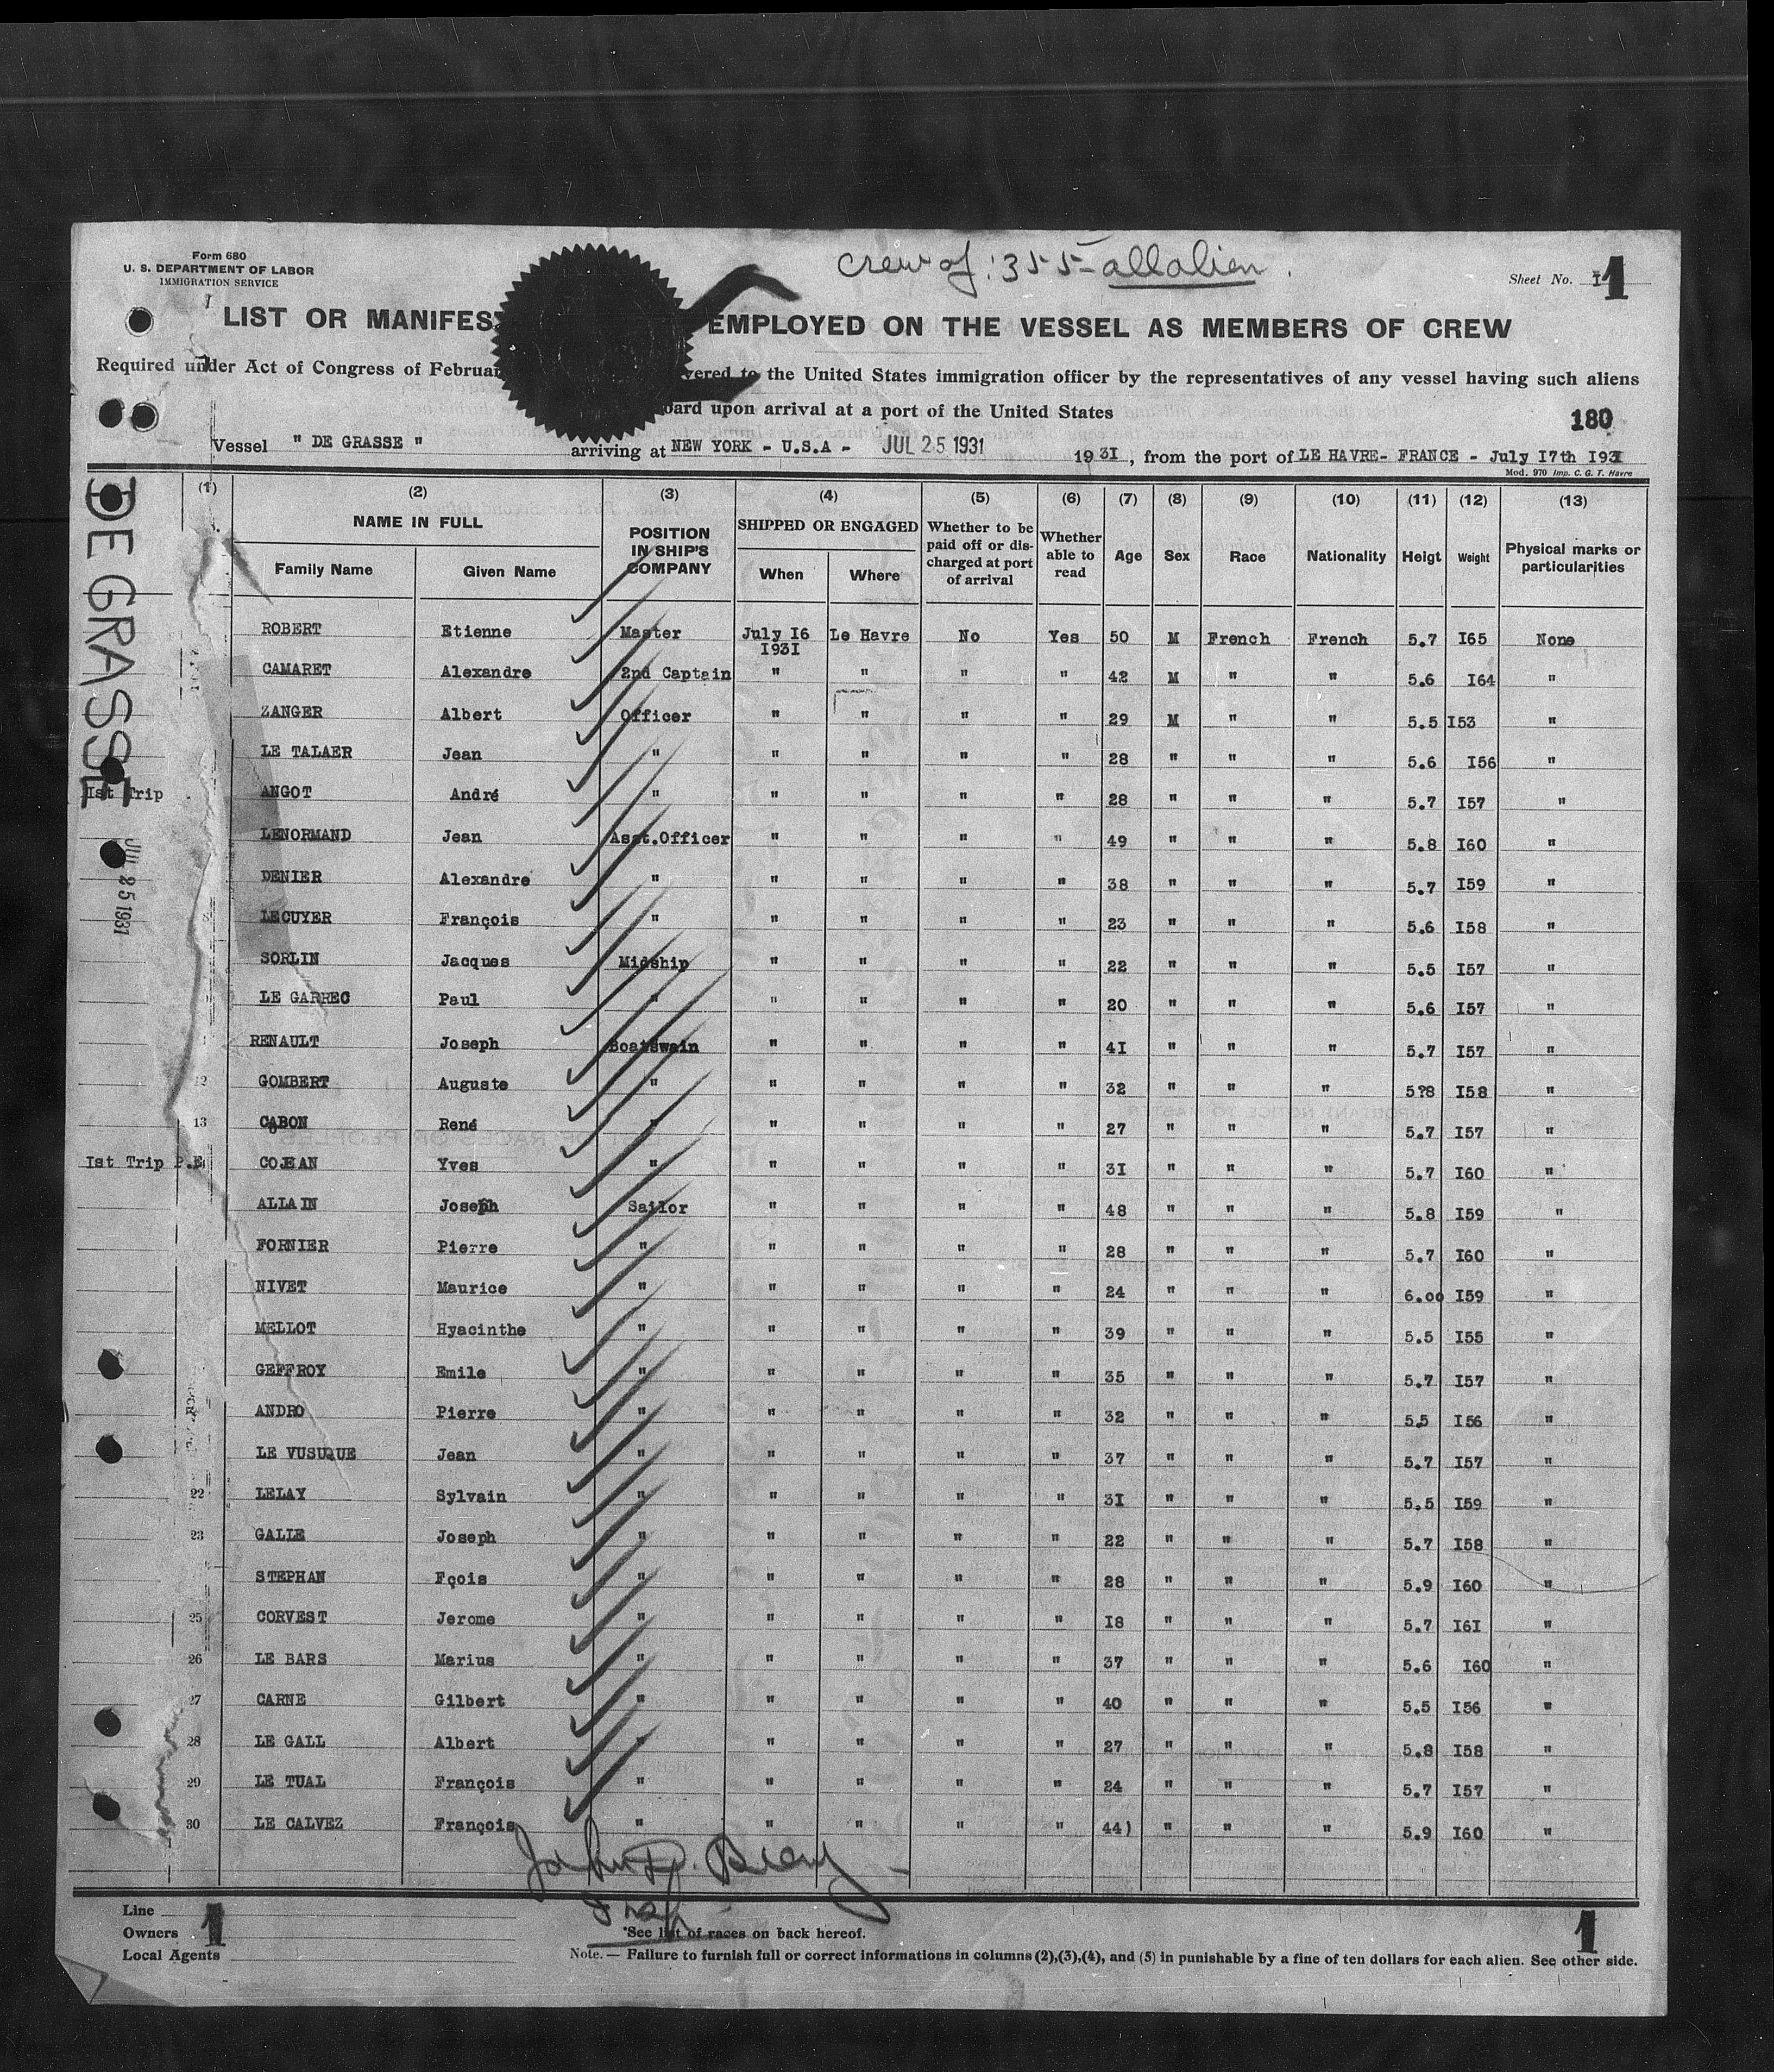 Form 680
U. S. DEPARTMENT OF LABOR
IMMIGRATION SERVICE
crew of 355 - all alien.
Sheet No. I 1
LIST OR MANIFES EMPLOYED ON THE VESSEL AS MEMBERS OF CREW
Required under Act of Congress of Februar vered to the United States immigration officer by the representatives of any vessel having such aliens
oard upon arrival at a port of the United States
180
Vessel " DE GRASSE " arriving at NEW YORK - U.S.A - JUL 25 1931 1931, from the port of LE HAVRE- FRANCE - July I7th I93I
Mod. 970 Imp. C. G. T. Havre
DE GRASSE
JUL 25 1931
(1) (2) (3) (4) (5) (6) (7) (8) (9) (10) (11) (12) (13)
NAME IN FULL POSITION IN SHIP'S COMPANY SHIPPED OR ENGAGED Whether to be paid off or discharged at port of arrival Whether able to read Age Sex Race Nationality Heigt Weight Physical marks or particularities
Family Name Given Name When Where
ROBERT Etienne Master July I6 I93I Le Havre No Yes 50 M French French 5.7 I65 None
CAMARET Alexandre 2nd Captain " " " " 42 M " " 5.6 I64 "
ZANGER Albert Officer " " " " 29 M " " 5.5 I53 "
LE TALAER Jean " " " " " 28 " " " 5.6 I56 "
Ist Trip ANGOT André " " " " " 28 " " " 5.7 I57 "
LENORMAND Jean Asst.Officer " " " " 49 " " " 5.8 I60 "
DENIER Alexandre " " " " " 38 " " " 5.7 I59 "
LECUYER François " " " " " 23 " " " 5.6 I58 "
SORLIN Jacques Midship " " " " 22 " " " 5.5 I57 "
LE GARREC Paul " " " " " 20 " " " 5.6 I57 "
RENAULT Joseph Boatswain " " " " 4I " " " 5.7 I57 "
12 GOMBERT Auguste " " " " " 32 " " " 5?8 I58 "
13 CABON René " " " " " 27 " " " 5.7 I57 "
Ist Trip P.E COJEAN Yves " " " " " 3I " " " 5.7 I60 "
ALLAIN Joseph Sailor " " " " 48 " " " 5.8 I59 "
FORNIER Pierre " " " " " 28 " " " 5.7 I60 "
NIVET Maurice " " " " " 24 " " " 6.00 I59 "
MELLOT Hyacinthe " " " " " 39 " " " 5.5 I55 "
GEFFROY Emile " " " " " 35 " " " 5.7 I57 "
ANDRO Pierre " " " " " 32 " " " 5.5 I56 "
LE VUSUQUE Jean " " " " " 37 " " " 5.7 I57 "
22 LELAY Sylvain " " " " " 3I " " " 5.5 I59 "
23 GALLE Joseph " " " " " 22 " " " 5.7 I58 "
STEPHAN Fçois " " " " " 28 " " " 5.9 I60 "
25 CORVEST Jerome " " " " " I8 " " " 5.7 I6I "
26 LE BARS Marius " " " " " 37 " " " 5.6 I60 "
27 CARNE Gilbert " " " " " 40 " " " 5.5 I56 "
28 LE GALL Albert " " " " " 27 " " " 5.8 I58 "
29 LE TUAL François " " " " " 24 " " " 5.7 I57 "
30 LE CALVEZ François " " " " " 44) " " " 5.9 I60 "
John
Line
Owners 1
Local Agents
*See list of races on back hereof.
1
Note. — Failure to furnish full or correct informations in columns (2),(3),(4), and (5) in punishable by a fine of ten dollars for each alien. See other side.